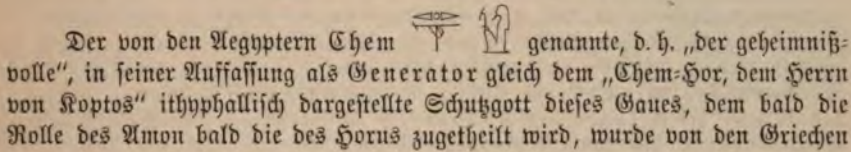 Der von den Aegyptern Chem genannte, d. h. „der geheimniß=
volle“, in seiner Auffassung als Generator gleich dem „Chem=Hor, dem Herrn
von Koptos“ ithyphallisch dargestellte Schutzgott dieses Gaues, dem bald die
Rolle des Amon bald die des Horus zugetheilt wird, wurde von den Griechen